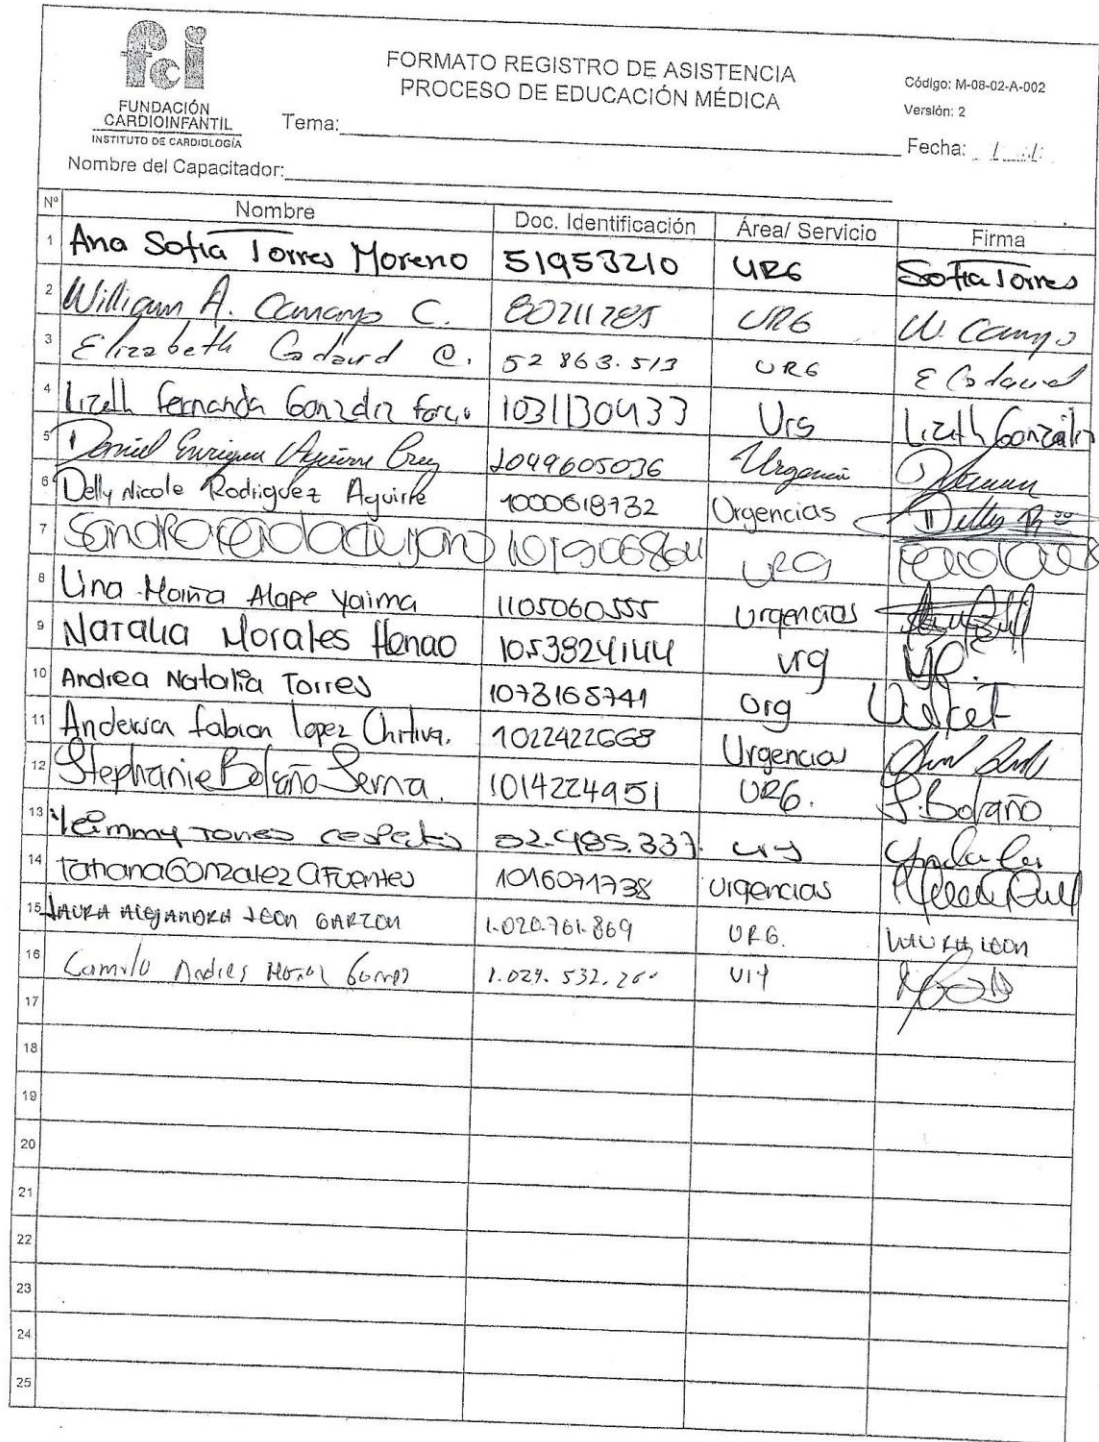 fci
FUNDACIÓN
CARDIOINFANTIL
INSTITUTO DE CARDIOLOGÍA
FORMATO REGISTRO DE ASISTENCIA
PROCESO DE EDUCACIÓN MÉDICA
Código: M-08-02-A-002
Versión: 2
Tema:
Fecha: / /
Nombre del Capacitador:
Nº Nombre Doc. Identificación Área/ Servicio Firma
1 Ana Sofia Torres Moreno 51953210 URG Sofia Torres
2 William A. Camargo C. 80211285 URG W. Camargo
3 Elizabeth C. 52 863.513 URG E
4 Lizeth Fernanda González 1031130433 Urg Lizeth González
5 Daniel Enrique 1049605036 Urgencia
6 Delly Nicole Rodriguez Aguirre 1000618732 Urgencias Delly
7 Sandra URG
8 Lina Maria Alape Yaima 1105060555 urgencias
9 Natalia Morales Henao 1053824144 urg
10 Andrea Natalia Torres 1073165741 Urg
11 Anderson fabian lopez Chitiva. 1022422668 Urgencias
12 Stephanie Bolaño Serna. 1014224951 URG. S. Bolaño
13 Yeimmy Torres 52.485.337 urg
14 Tatiana Gonzalez Cifuentes 1016071738 urgencias
15 LAURA ALEJANDRA LEON GARZON 1.020.761.869 URG. LAURA LEON
16 Camilo Andres 1.024.532.
17
18
19
20
21
22
23
24
25